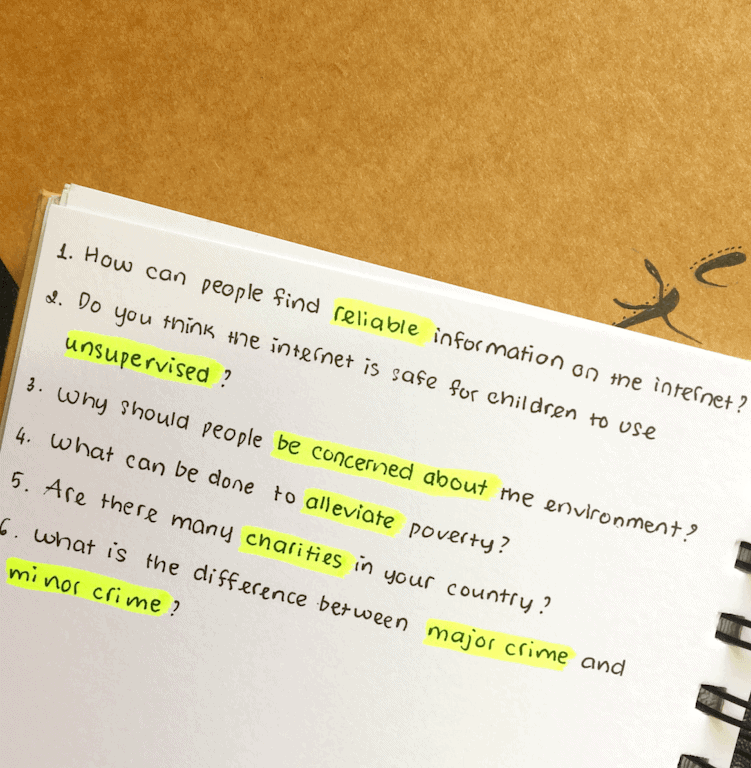 1. How can people find reliable information on the internet?
2. Do you think the internet is safe for children to use
unsupervised?
3. Why should people be concerned about the environment?
4. What can be done to alleviate poverty?
5. Are there many charities in your country?
6. What is the difference between major crime and
minor crime?